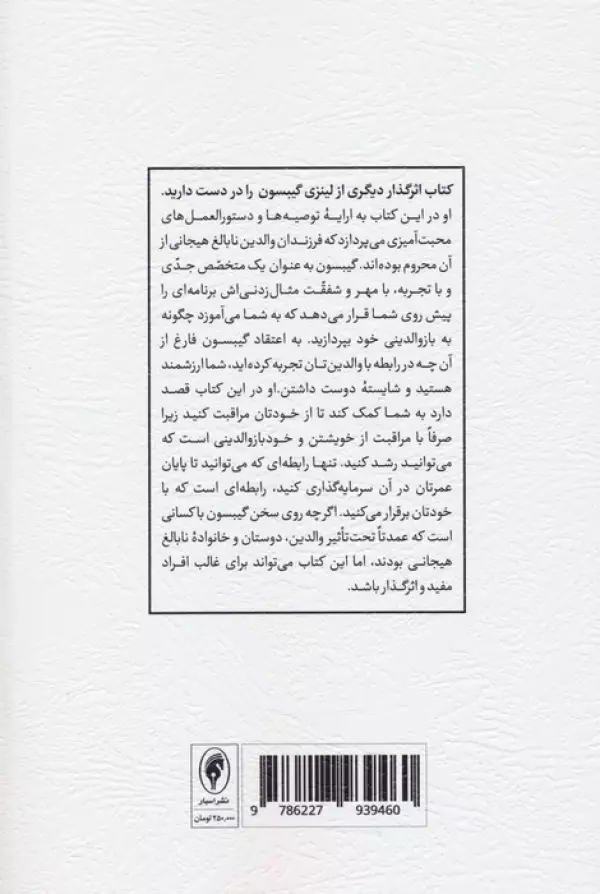 کتاب اثرگذار دیگری از لینزی گیبسون را در دست دارید.
او در این کتاب به ارایهٔ توصیه‌ها و دستورالعمل‌های
محبت‌آمیزی می‌پردازد که فرزندان والدین نابالغ هیجانی از
آن محروم بوده‌اند. گیبسون به عنوان یک متخصّص جدّی
و با تجربه، با مهر و شفقّت مثال‌زدنی‌اش برنامه‌ای را
پیش روی شما قرار می‌دهد که به شما می‌آموزد چگونه
به بازوالدینی خود بپردازید. به اعتقاد گیبسون فارغ از
آن چه در رابطه با والدین‌تان تجربه کرده‌اید، شما ارزشمند
هستید و شایستهٔ دوست داشتن.او در این کتاب قصد
دارد به شما کمک کند تا از خودتان مراقبت کنید زیرا
صرفاً با مراقبت از خویشتن و خودبازوالدینی است که
می‌توانید رشد کنید. تنها رابطه‌ای که می‌توانید تا پایان
عمرتان در آن سرمایه‌گذاری کنید، رابطه‌ای است که با
خودتان برقرار می‌کنید. اگرچه روی سخن گیبسون با کسانی
است که عمدتاً تحت‌تأثیر والدین، دوستان و خانوادهٔ نابالغ
هیجانی بودند، اما این کتاب می‌تواند برای غالب افراد
مفید و اثرگذار باشد.
نشر اسبار
۲۵۰,۰۰۰ تومان
9 786227 939460